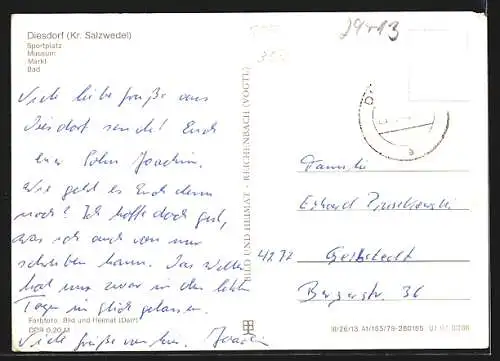 Diesdorf (Kr. Salzwedel)
Sportplatz
Museum
Markt
Bad
Viele liebe Grüße aus
Diesdorf sendet Euch
euer Sohn Joachim.
Wie geht es Euch denn
noch? Ich hoffe doch gut,
was ich auch von mir
schreiben kann. Das Wetter
hat uns zwar in den letzten
Tagen im Stich gelassen.
Viele Grüße von hier. Joachim
Farbfoto: Bild und Heimat (Darr)
DDR 0,20 M
BILD UND HEIMAT · REICHENBACH (VOGTL)
Familie
Erhard
4272 Gerbstedt
Bergerstr. 36
III/26/13 A1/165/79-280165 01 01 0200